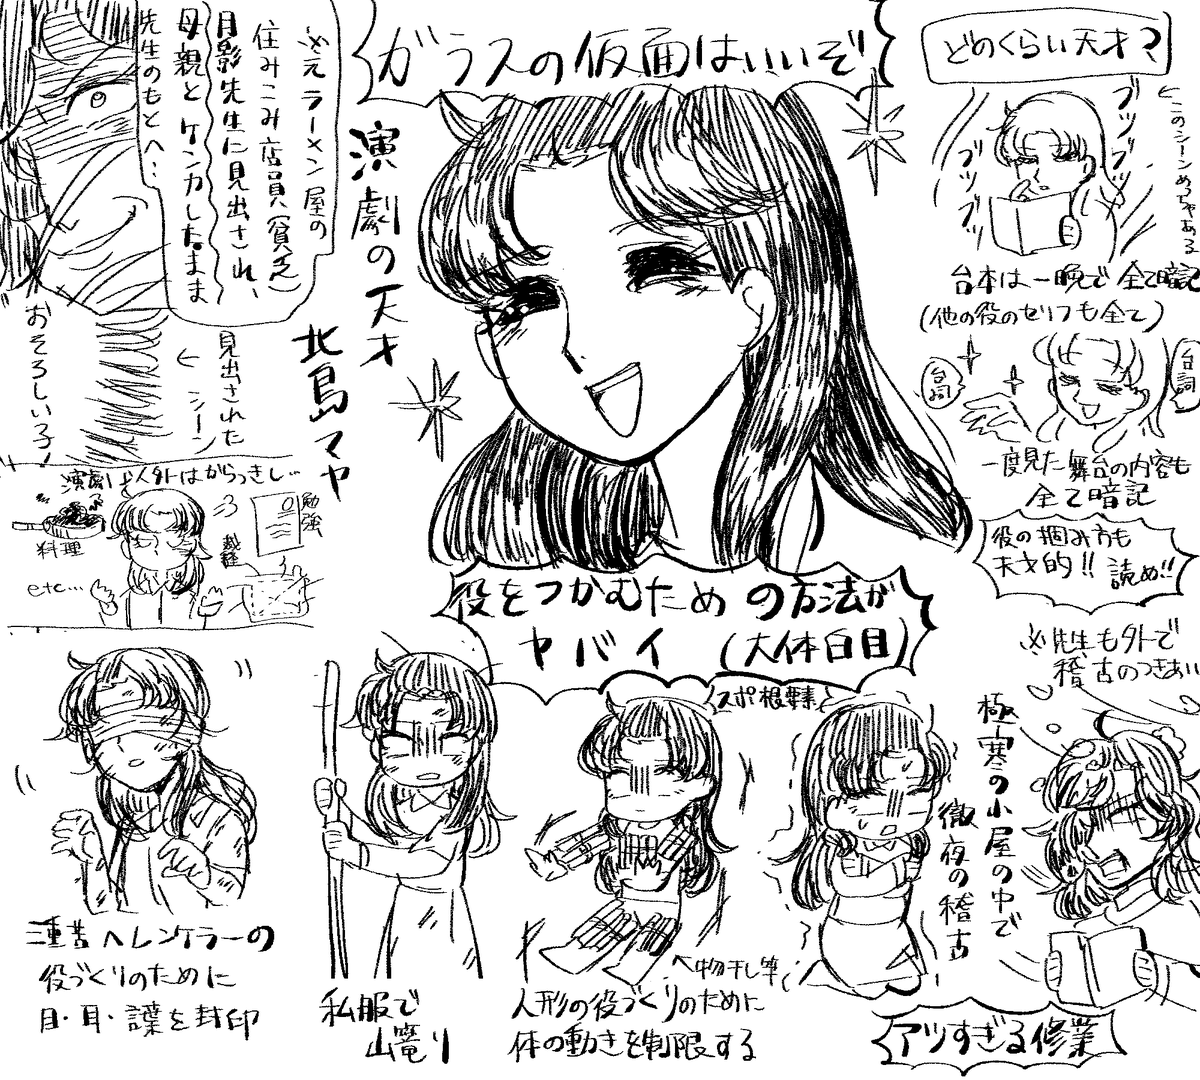 ガラスの仮面はいいぞ!
演劇の天才
北島マヤ
※元ラーメン屋の
住みこみ店員(貧乏)
月影先生に見出され、
母親とケンカしたまま
先生のもとへ…
見出された
シーン
おそろしい子!
演劇以外はからっきし…
料理
勉強
裁縫
etc…
どのくらい天才?
ブツブツ
ブツブツ
←このシーンめっちゃある
台本は一晩で全て暗記
(他の役のセリフも全て)
台詞
台詞
一度見た舞台の内容も
全て暗記
役の掴み方も
天才的!!読め!!
役をつかむための方法が
ヤバイ(大体白目)
スポ根要素
三重苦ヘレンケラーの
役づくりのために
目・耳・言葉を封印
私服で
山篭り
物干し竿
人形の役づくりのために
体の動きを制限する
極寒の小屋の中で
徹夜の稽古
※先生も外で
稽古のつきあい
アツすぎる修業